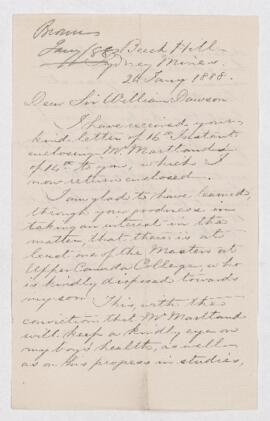 Brown
Jany/88 Beech Hill
Sydney Mines
20 Jany 1888.
Dear Sir William Dawson
I have received your
kind letter of 16th instant
enclosing Mr. Martland's
of 14th to you, which I
now return enclosed.
I am glad to have learned,
through your goodness in
taking an interest in the
matter, that there is at
least one of the Masters at
Upper Canada College who
is kindly disposed towards
my son. This, with the
conviction that Mr Martland
will keep a kindly eye on
my boy's health, as well as
as on his progress in studies,